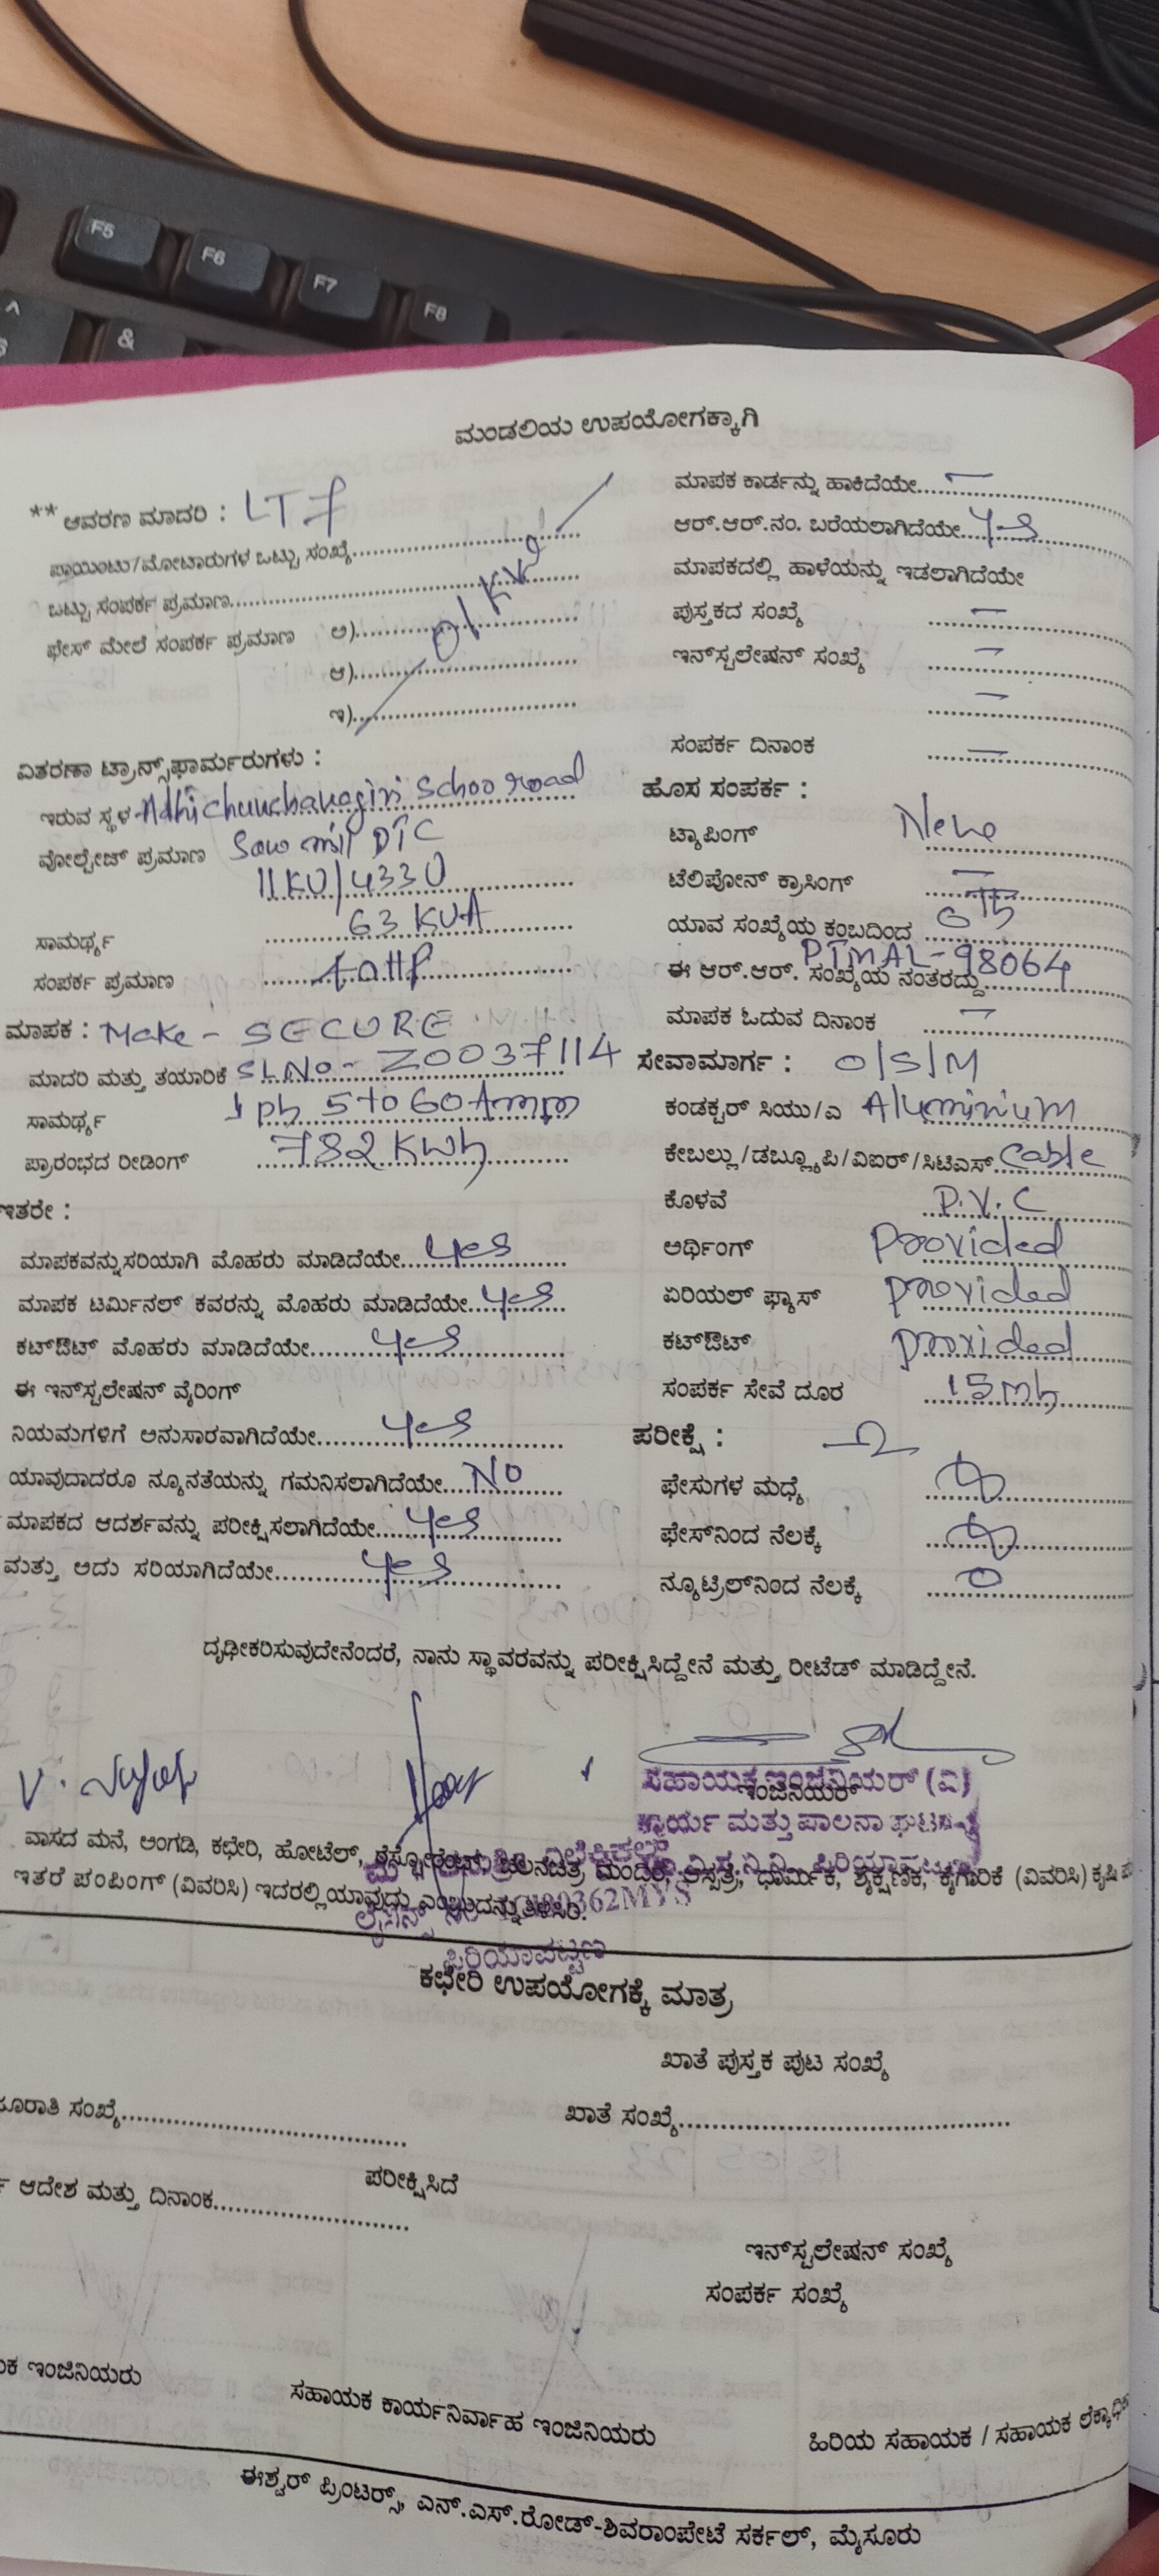 F5
F6
F7
F8
&
ಮಂಡಲಿಯ ಉಪಯೋಗಕ್ಕಾಗಿ
** ಆವರಣ ಮಾದರಿ : LT 7
ಪಾಯಿಂಟು/ಮೋಟಾರುಗಳ ಒಟ್ಟು ಸಂಖ್ಯೆ
ಒಟ್ಟು ಸಂಪರ್ಕ ಪ್ರಮಾಣ
ಫೇಸ್ ಮೇಲೆ ಸಂಪರ್ಕ ಪ್ರಮಾಣ ಅ)
01 KW
ಆ)
ಇ)
ವಿತರಣಾ ಟ್ರಾನ್ಸ್‌ಫಾರ್ಮರುಗಳು :
ಇರುವ ಸ್ಥಳ Adhichunchanagiri Schoo road
ವೋಲ್ಟೇಜ್ ಪ್ರಮಾಣ Saw mill DTC
11KV/433V
63 KVA
ಸಾಮರ್ಥ್ಯ
ಸಂಪರ್ಕ ಪ್ರಮಾಣ
ಮಾಪಕ : Make - SECURE
ಮಾದರಿ ಮತ್ತು ತಯಾರಿಕೆ SL.No- Z0037114
ಸಾಮರ್ಥ್ಯ 1 ph 5 to 60 Amm
ಪ್ರಾರಂಭದ ರೀಡಿಂಗ್ 782 KWh
ಇತರೇ :
ಮಾಪಕವನ್ನು ಸರಿಯಾಗಿ ಮೊಹರು ಮಾಡಿದೆಯೇ yes
ಮಾಪಕ ಟರ್ಮಿನಲ್ ಕವರನ್ನು ಮೊಹರು ಮಾಡಿದೆಯೇ yes
ಕಟ್‌ಔಟ್ ಮೊಹರು ಮಾಡಿದೆಯೇ yes
ಈ ಇನ್‌ಸ್ಟಲೇಷನ್ ವೈರಿಂಗ್
ನಿಯಮಗಳಿಗೆ ಅನುಸಾರವಾಗಿದೆಯೇ yes
ಯಾವುದಾದರೂ ನ್ಯೂನತೆಯನ್ನು ಗಮನಿಸಲಾಗಿದೆಯೇ NO
ಮಾಪಕದ ಆದರ್ಶವನ್ನು ಪರೀಕ್ಷಿಸಲಾಗಿದೆಯೇ yes
ಮತ್ತು ಅದು ಸರಿಯಾಗಿದೆಯೇ yes
ಮಾಪಕ ಕಾರ್ಡನ್ನು ಹಾಕಿದೆಯೇ —
ಆರ್.ಆರ್.ನಂ. ಬರೆಯಲಾಗಿದೆಯೇ yes
ಮಾಪಕದಲ್ಲಿ ಹಾಳೆಯನ್ನು ಇಡಲಾಗಿದೆಯೇ
ಪುಸ್ತಕದ ಸಂಖ್ಯೆ —
ಇನ್‌ಸ್ಟಲೇಷನ್ ಸಂಖ್ಯೆ —
—
ಸಂಪರ್ಕ ದಿನಾಂಕ —
ಹೊಸ ಸಂಪರ್ಕ :
ಟ್ಯಾಪಿಂಗ್
ಟೆಲಿಪೋನ್ ಕ್ರಾಸಿಂಗ್ —
ಯಾವ ಸಂಖ್ಯೆಯ ಕಂಬದಿಂದ
PTMAL-98064
ಈ ಆರ್.ಆರ್. ಸಂಖ್ಯೆಯ ನಂತರದ್ದು
ಮಾಪಕ ಓದುವ ದಿನಾಂಕ —
ಸೇವಾಮಾರ್ಗ : O/S/M
ಕಂಡಕ್ಟರ್ ಸಿಯು/ಎ Aluminium
ಕೇಬಲ್ಲು/ಡಬ್ಲ್ಯೂಪಿ/ವಿಐರ್/ಸಿಟಿಎಸ್ Cable
ಕೊಳವೆ P.V.C
ಅರ್ಥಿಂಗ್ Provided
ಏರಿಯಲ್ ಫ್ಯಾಸ್ provided
ಕಟ್‌ಔಟ್ provided
ಸಂಪರ್ಕ ಸೇವೆ ದೂರ
ಪರೀಕ್ಷೆ :
ಫೇಸುಗಳ ಮಧ್ಯೆ
ಫೇಸ್‌ನಿಂದ ನೆಲಕ್ಕೆ
ನ್ಯೂಟ್ರಲ್‌ನಿಂದ ನೆಲಕ್ಕೆ 0
ದೃಢೀಕರಿಸುವುದೇನೆಂದರೆ, ನಾನು ಸ್ಥಾವರವನ್ನು ಪರೀಕ್ಷಿಸಿದ್ದೇನೆ ಮತ್ತು ರೀಟೆಡ್ ಮಾಡಿದ್ದೇನೆ.
ಸಹಾಯಕ ಇಂಜಿನಿಯರ್ (ವಿ)
ಇಂಜಿನಿಯರ್
ಕಾರ್ಯ ಮತ್ತು ಪಾಲನಾ ಘಟಕ
ವಾಸದ ಮನೆ, ಅಂಗಡಿ, ಕಛೇರಿ, ಹೋಟೆಲ್, ರೆಸ್ಟೋರೆಂಟ್, ಚಲನಚಿತ್ರ ಮಂದಿರ, ಆಸ್ಪತ್ರೆ, ಧಾರ್ಮಿಕ, ಶೈಕ್ಷಣಿಕ, ಕೈಗಾರಿಕೆ (ವಿವರಿಸಿ) ಕೃಷಿ
ಇತರೆ ಪಂಪಿಂಗ್ (ವಿವರಿಸಿ) ಇದರಲ್ಲಿ ಯಾವುದು ಎಂಬುದನ್ನು ತಿಳಿಸಿರಿ.
ಪಿರಿಯಾಪಟ್ಟಣ
ಕಛೇರಿ ಉಪಯೋಗಕ್ಕೆ ಮಾತ್ರ
ಖಾತೆ ಪುಸ್ತಕ ಪುಟ ಸಂಖ್ಯೆ
ಸಂಖ್ಯೆ
ಖಾತೆ ಸಂಖ್ಯೆ
ಆದೇಶ ಮತ್ತು ದಿನಾಂಕ
ಪರೀಕ್ಷಿಸಿದೆ
ಇನ್‌ಸ್ಟಲೇಷನ್ ಸಂಖ್ಯೆ
ಸಂಪರ್ಕ ಸಂಖ್ಯೆ
ಇಂಜಿನಿಯರು
ಸಹಾಯಕ ಕಾರ್ಯನಿರ್ವಾಹ ಇಂಜಿನಿಯರು
ಹಿರಿಯ ಸಹಾಯಕ / ಸಹಾಯಕ
ಈಶ್ವರ್ ಪ್ರಿಂಟರ್ಸ್, ಎನ್.ಎಸ್.ರೋಡ್-ಶಿವರಾಂಪೇಟೆ ಸರ್ಕಲ್, ಮೈಸೂರು